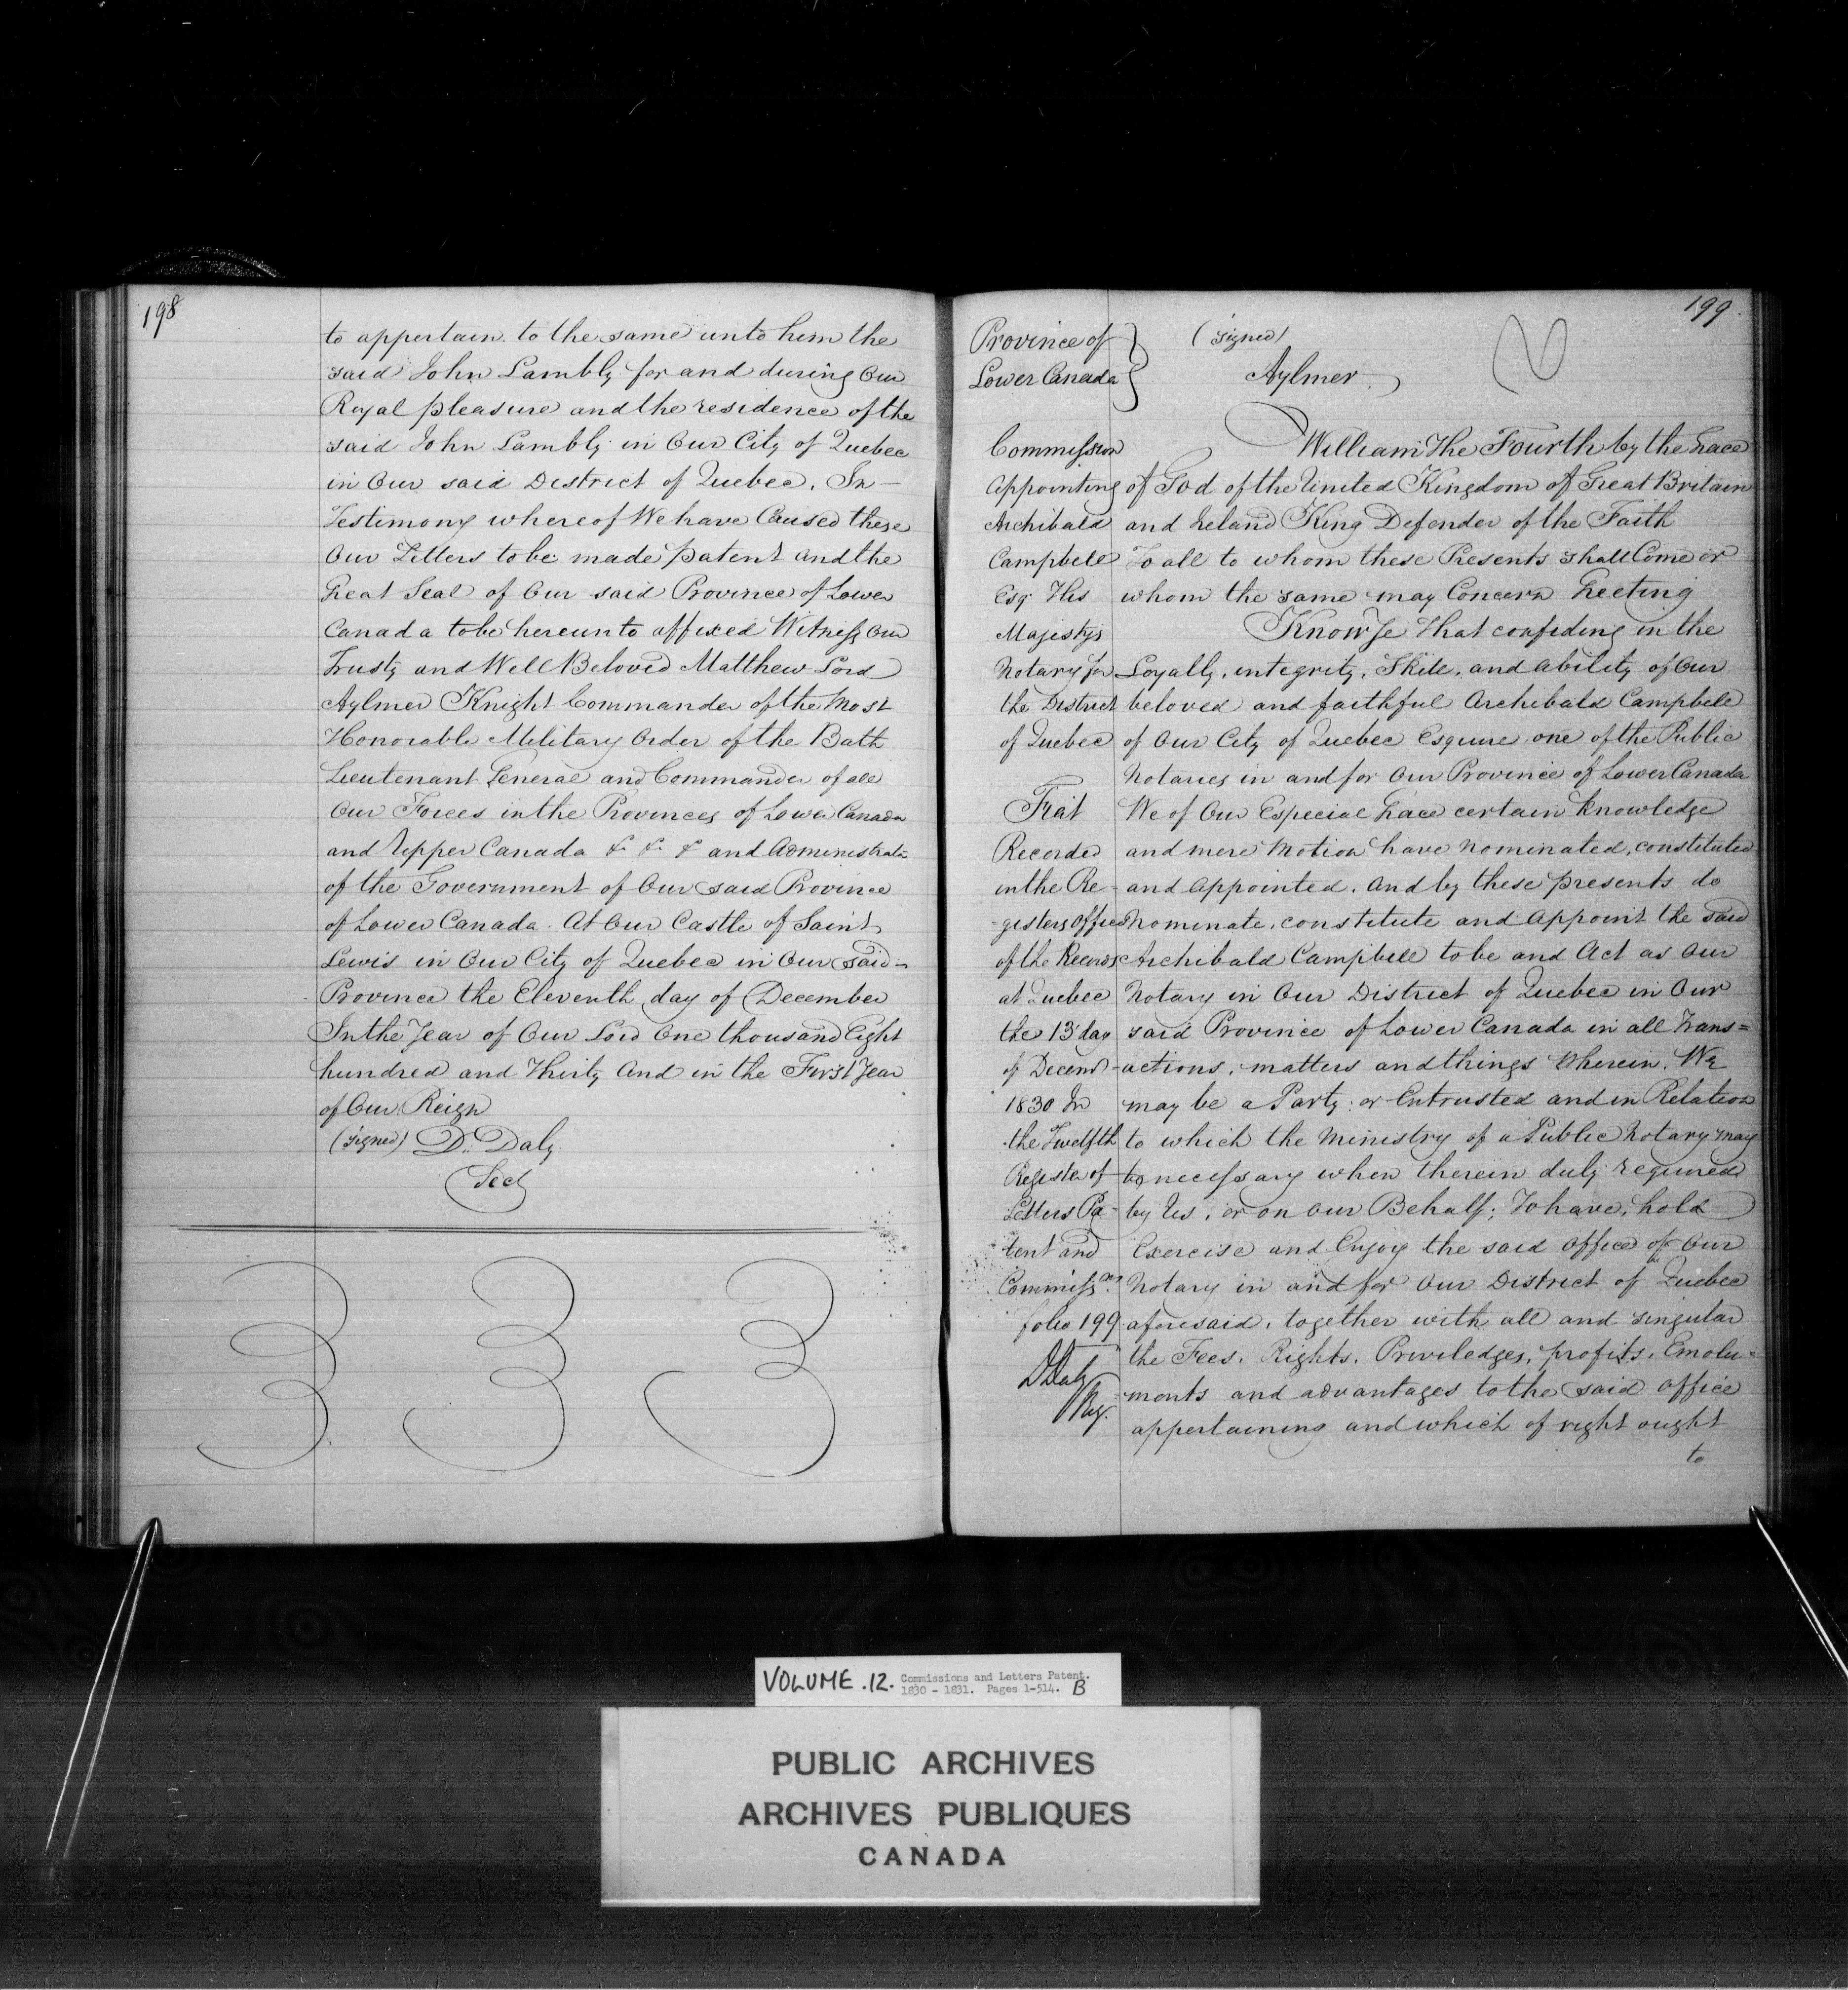 198
to appertain to the same unto him the
said John Lambly for and during Our
Royal pleasure and the residence of the
said John Lambly in Our City of Quebec
in Our said District of Quebec. In
Testimony whereof We have Caused these
Our Letters to be made patent and the
Great Seal of Our said Province of Lower
Canada to be hereunto affixed Witness Our
Trusty and Well Beloved Matthew Lord
Aylmer Knight Commander of the Most
Honorable Military Order of the Bath
Lieutenant General and Commander of all
Our Forces in the Provinces of Lower Canada
and Upper Canada &c &c &c and Administrator
of the Government of Our said Province
of Lower Canada. At Our Castle of Saint
Lewis in Our City of Quebec in Our said
Province the Eleventh day of December
In the Year of Our Lord One thousand Eight
hundred and Thirty And in the First Year
of Our Reign
(signed) D. Daly
Secy
199.
Province of
Lower Canada
(signed)
Aylmer
Commission
Appointing
Archibald
Campbell
Esqr. His
Majesty's
Notary for
the District
of Quebec
Fiat
Recorded
in the Re-
-gisters Office
of the Records
at Quebec
the 13 day
of Decemr
1830 In
the Twelfth
Register of
Letters Pa-
tent and
Commissons
folio 199
DDaly
Reg.
William The Fourth by the Grace
of God of the United Kingdom of Great Britain
and Ireland King Defender of the Faith
To all to whom these Presents shall Come or
whom the same may Concern Greeting
Know Ye That confiding in the
Loyally, integrity, Skill, and ability of Our
beloved and faithful Archibald Campbell
of Our City of Quebec Esquire one of the Public
Notaries in and for Our Province of Lower Canada
We of Our Especial Grace certain Knowledge
and mere Motion have nominated, constituted
and Appointed. And by these presents do
Nominate, constitute and Appoint the said
Archibald Campbell to be and Act as Our
Notary in Our District of Quebec in Our
said Province of Lower Canada in all Trans=
-actions, matters and things Wherein We
may be a Party or Entrusted and in Relation
to which the Ministry of a Public Notary may
be necessary when therein duly required
by Us, or on Our Behalf; To have, hold
Exercise and Enjoy the said Office of Our
Notary in and for Our District of Quebec
aforesaid, together with all and singular
the Fees, Rights, Priviledges, profits, Emolu=
=ments and advantages to the said Office
appertaining and which of right ought
to
VOLUME .12. Commissions and Letters Patent.
1830 - 1831. Pages 1-514. B
PUBLIC ARCHIVES
ARCHIVES PUBLIQUES
CANADA